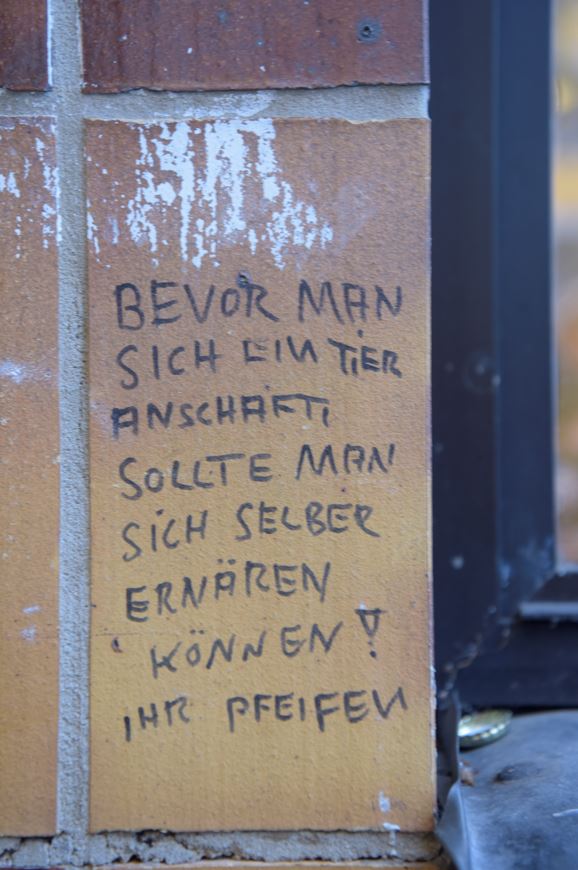 BEVOR MAN
SICH EIN TIER
ANSCHAFT,
SOLLTE MAN
SICH SELBER
ERNÄREN
KÖNNEN!
IHR PFEIFEN